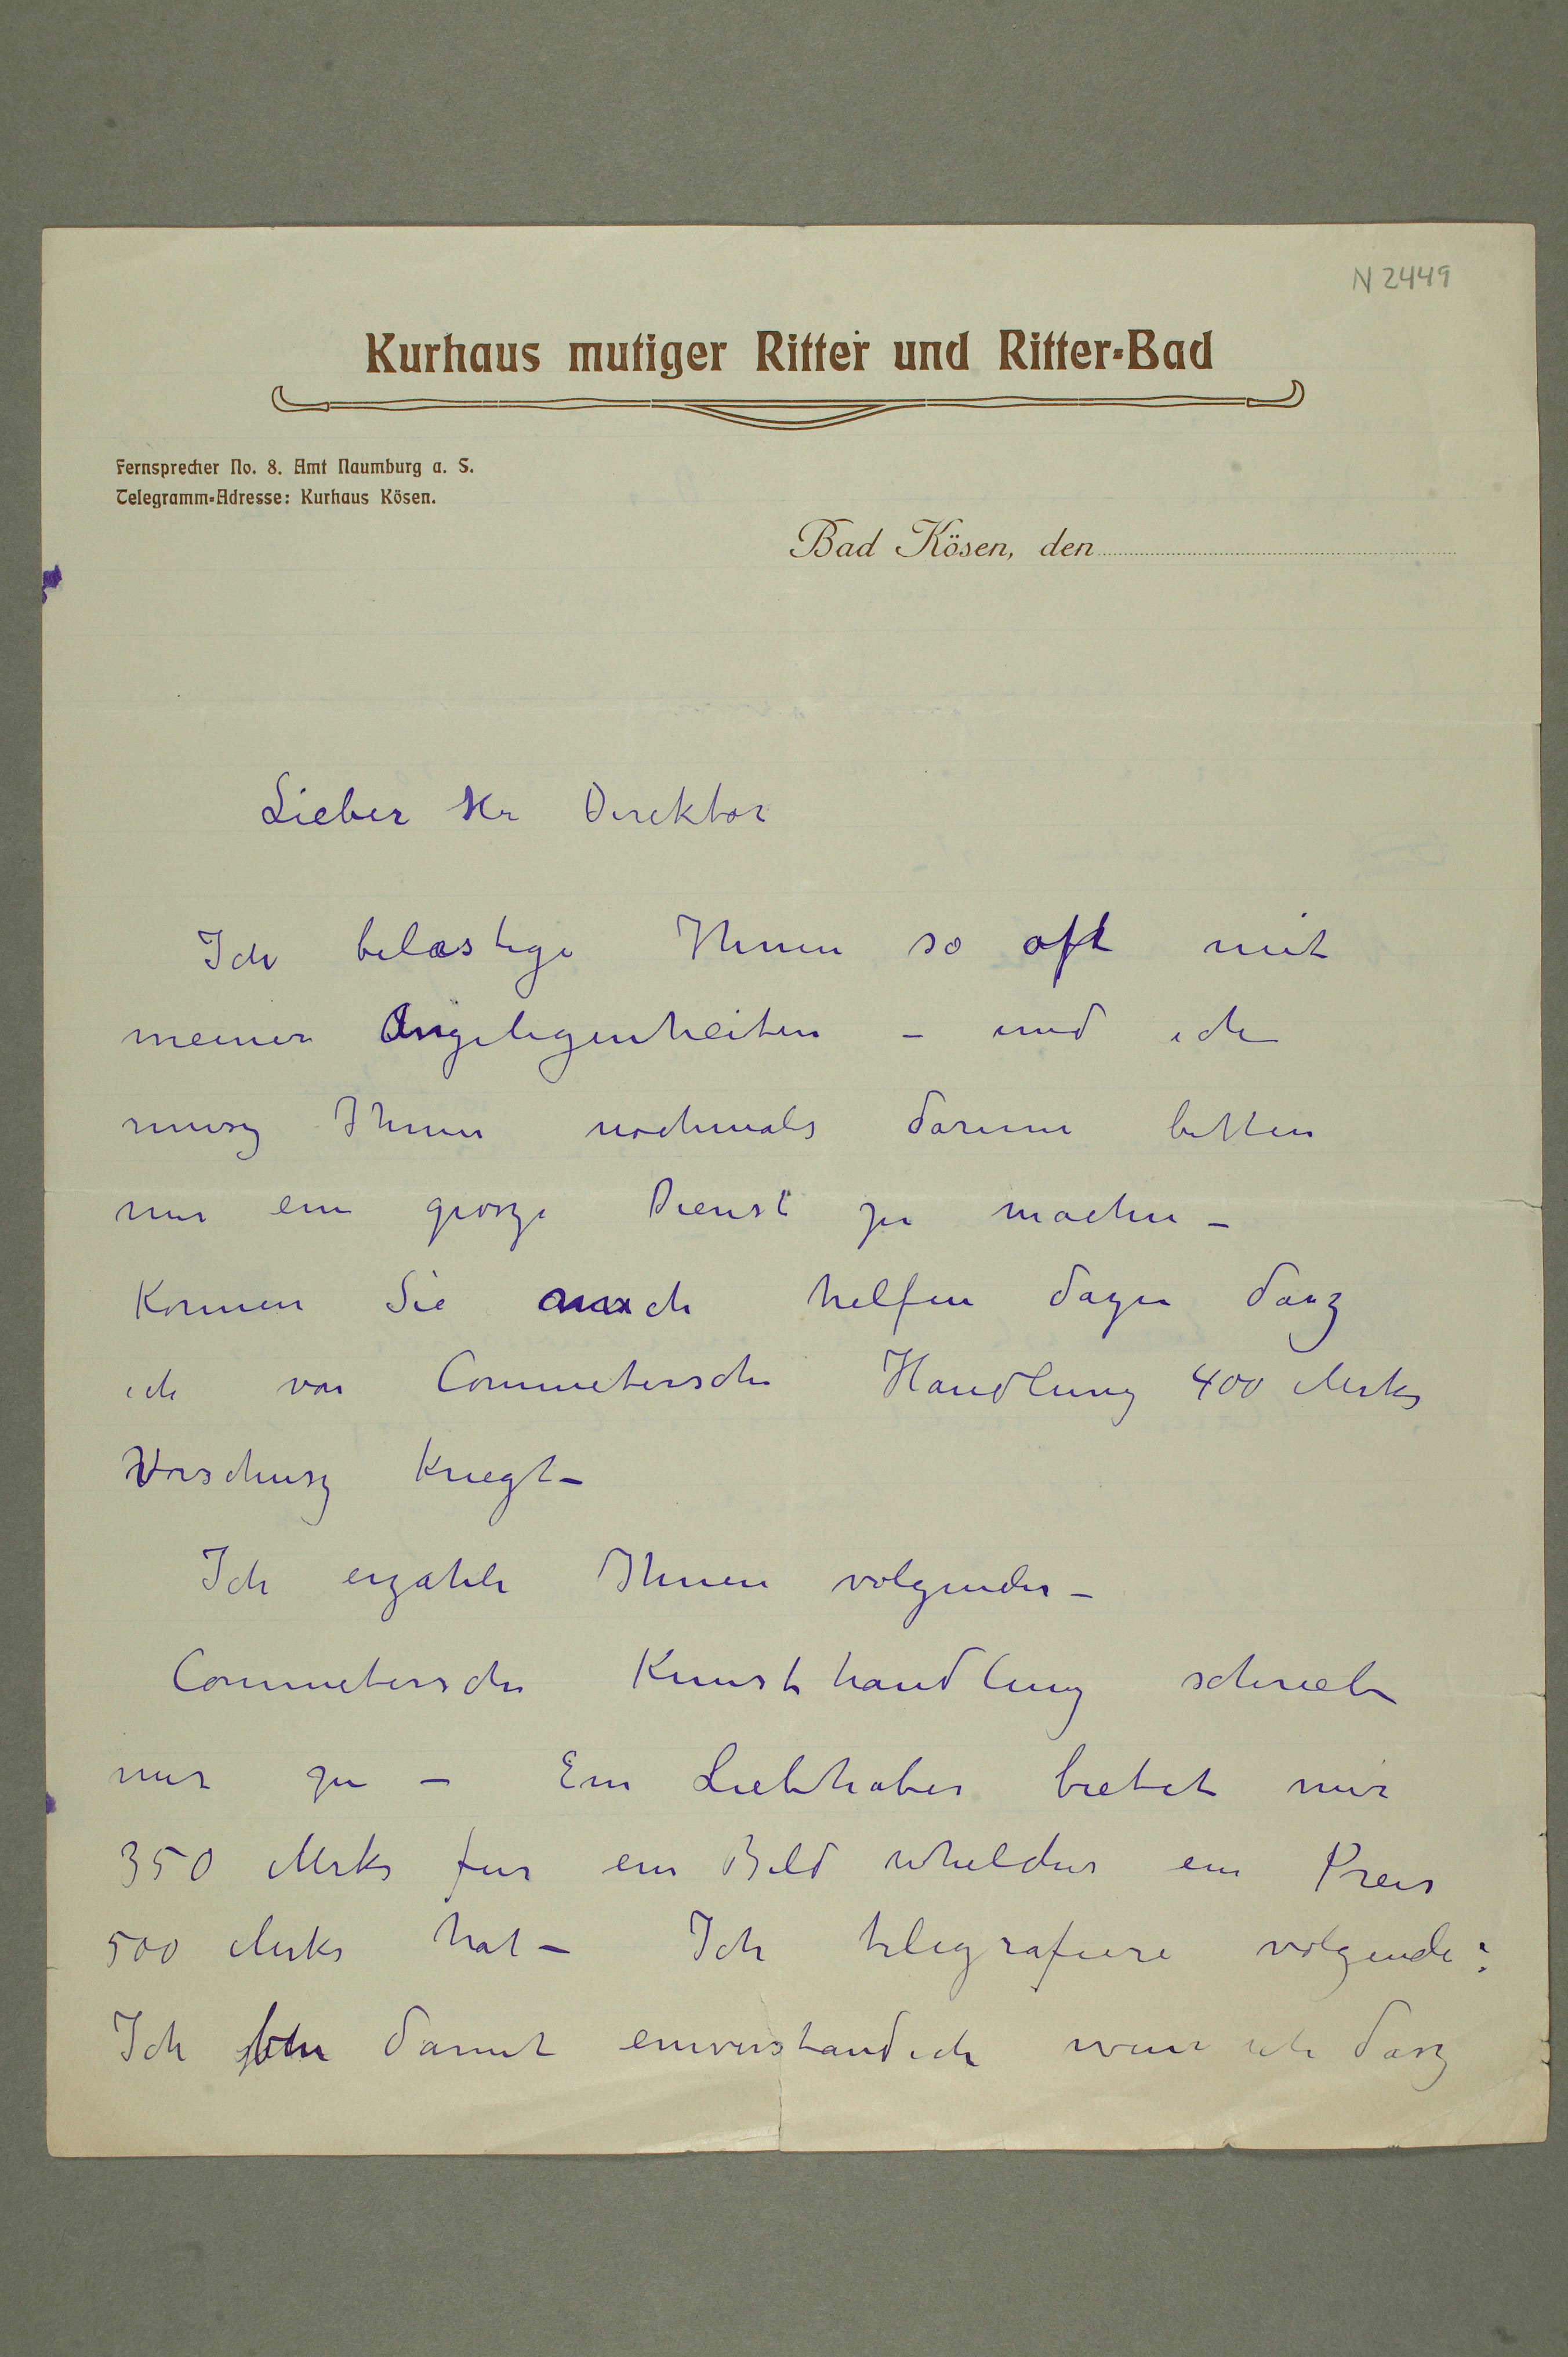 N 2449
Kurhaus mutiger Ritter und Ritter-Bad
Fernsprecher No. 8. Amt Naumburg a. S.
Telegramm-Adresse: Kurhaus Kösen.
Bad Kösen, den
Lieber Hr Direktor
Ich belastige Ihnen so oft mit
meiner Angeligenheiten – und ich
musz Ihnen nochmals darum bitten
mir ein grosze Dienst zu machen –
Konnen Sie mich helfen dazu dasz
ich von Commetersche Handlung 400 Mrks
Vorschusz kriegt –
Ich erzahle Ihnen volgender –
Commetersche Kunsthandlung schrieb
mir zu – Ein Liebhaber bietet mir
350 Mrks fur ein Bild whelches ein Preis
500 Mrks hat – Ich telegrafiere volgende:
Ich bin damit einverstandich wenn ich dasz